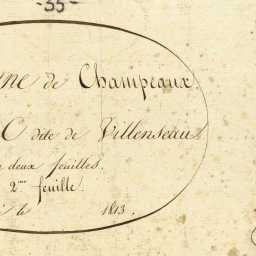 -35-
ne de Champeaux.
C dite de Villenseau
deux feuilles.
2me feuille.
le 1813.